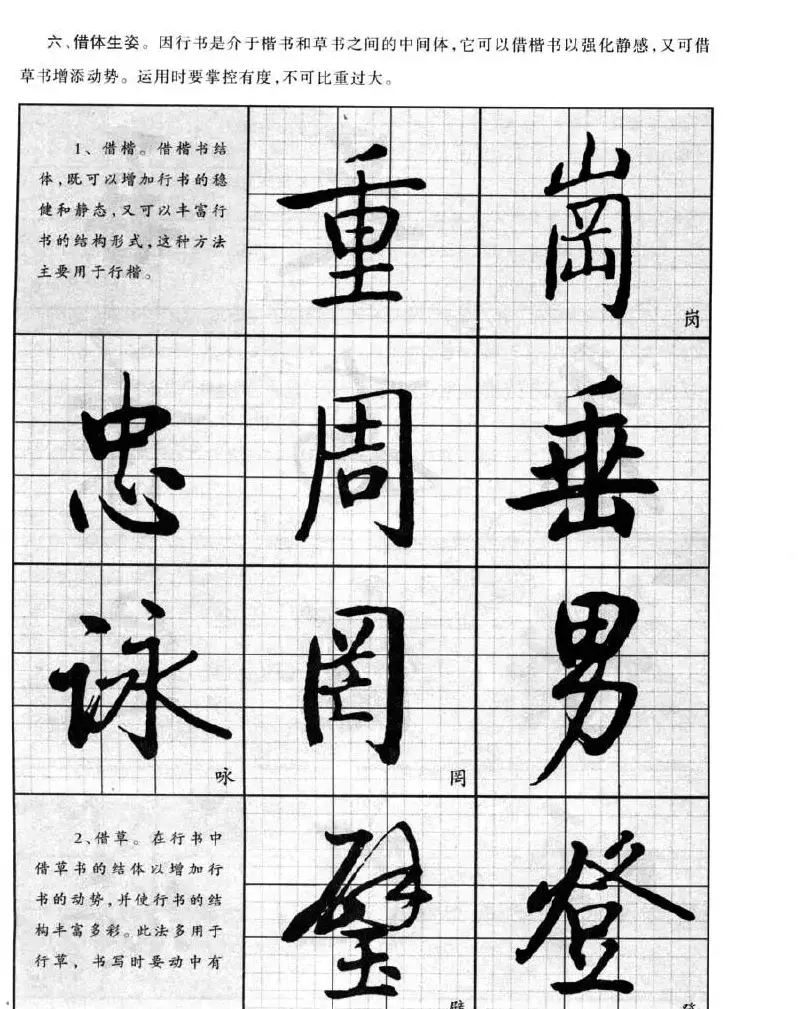 六、借体生姿。因行书是介于楷书和草书之间的中间体,它可以借楷书以强化静感,又可借
草书增添动势。运用时要掌控有度,不可比重过大。
1、借楷。借楷书结
体,既可以增加行书的稳
健和静态,又可以丰富行
书的结构形式,这种方法
主要用于行楷。
重
崗
岗
忠
周
垂
詠
咏
罔
罔
男
2、借草。在行书中
借草书的结体以增加行
书的动势,并使行书的结
构丰富多彩。此法多用于
行草，书写时要动中有
璧
登